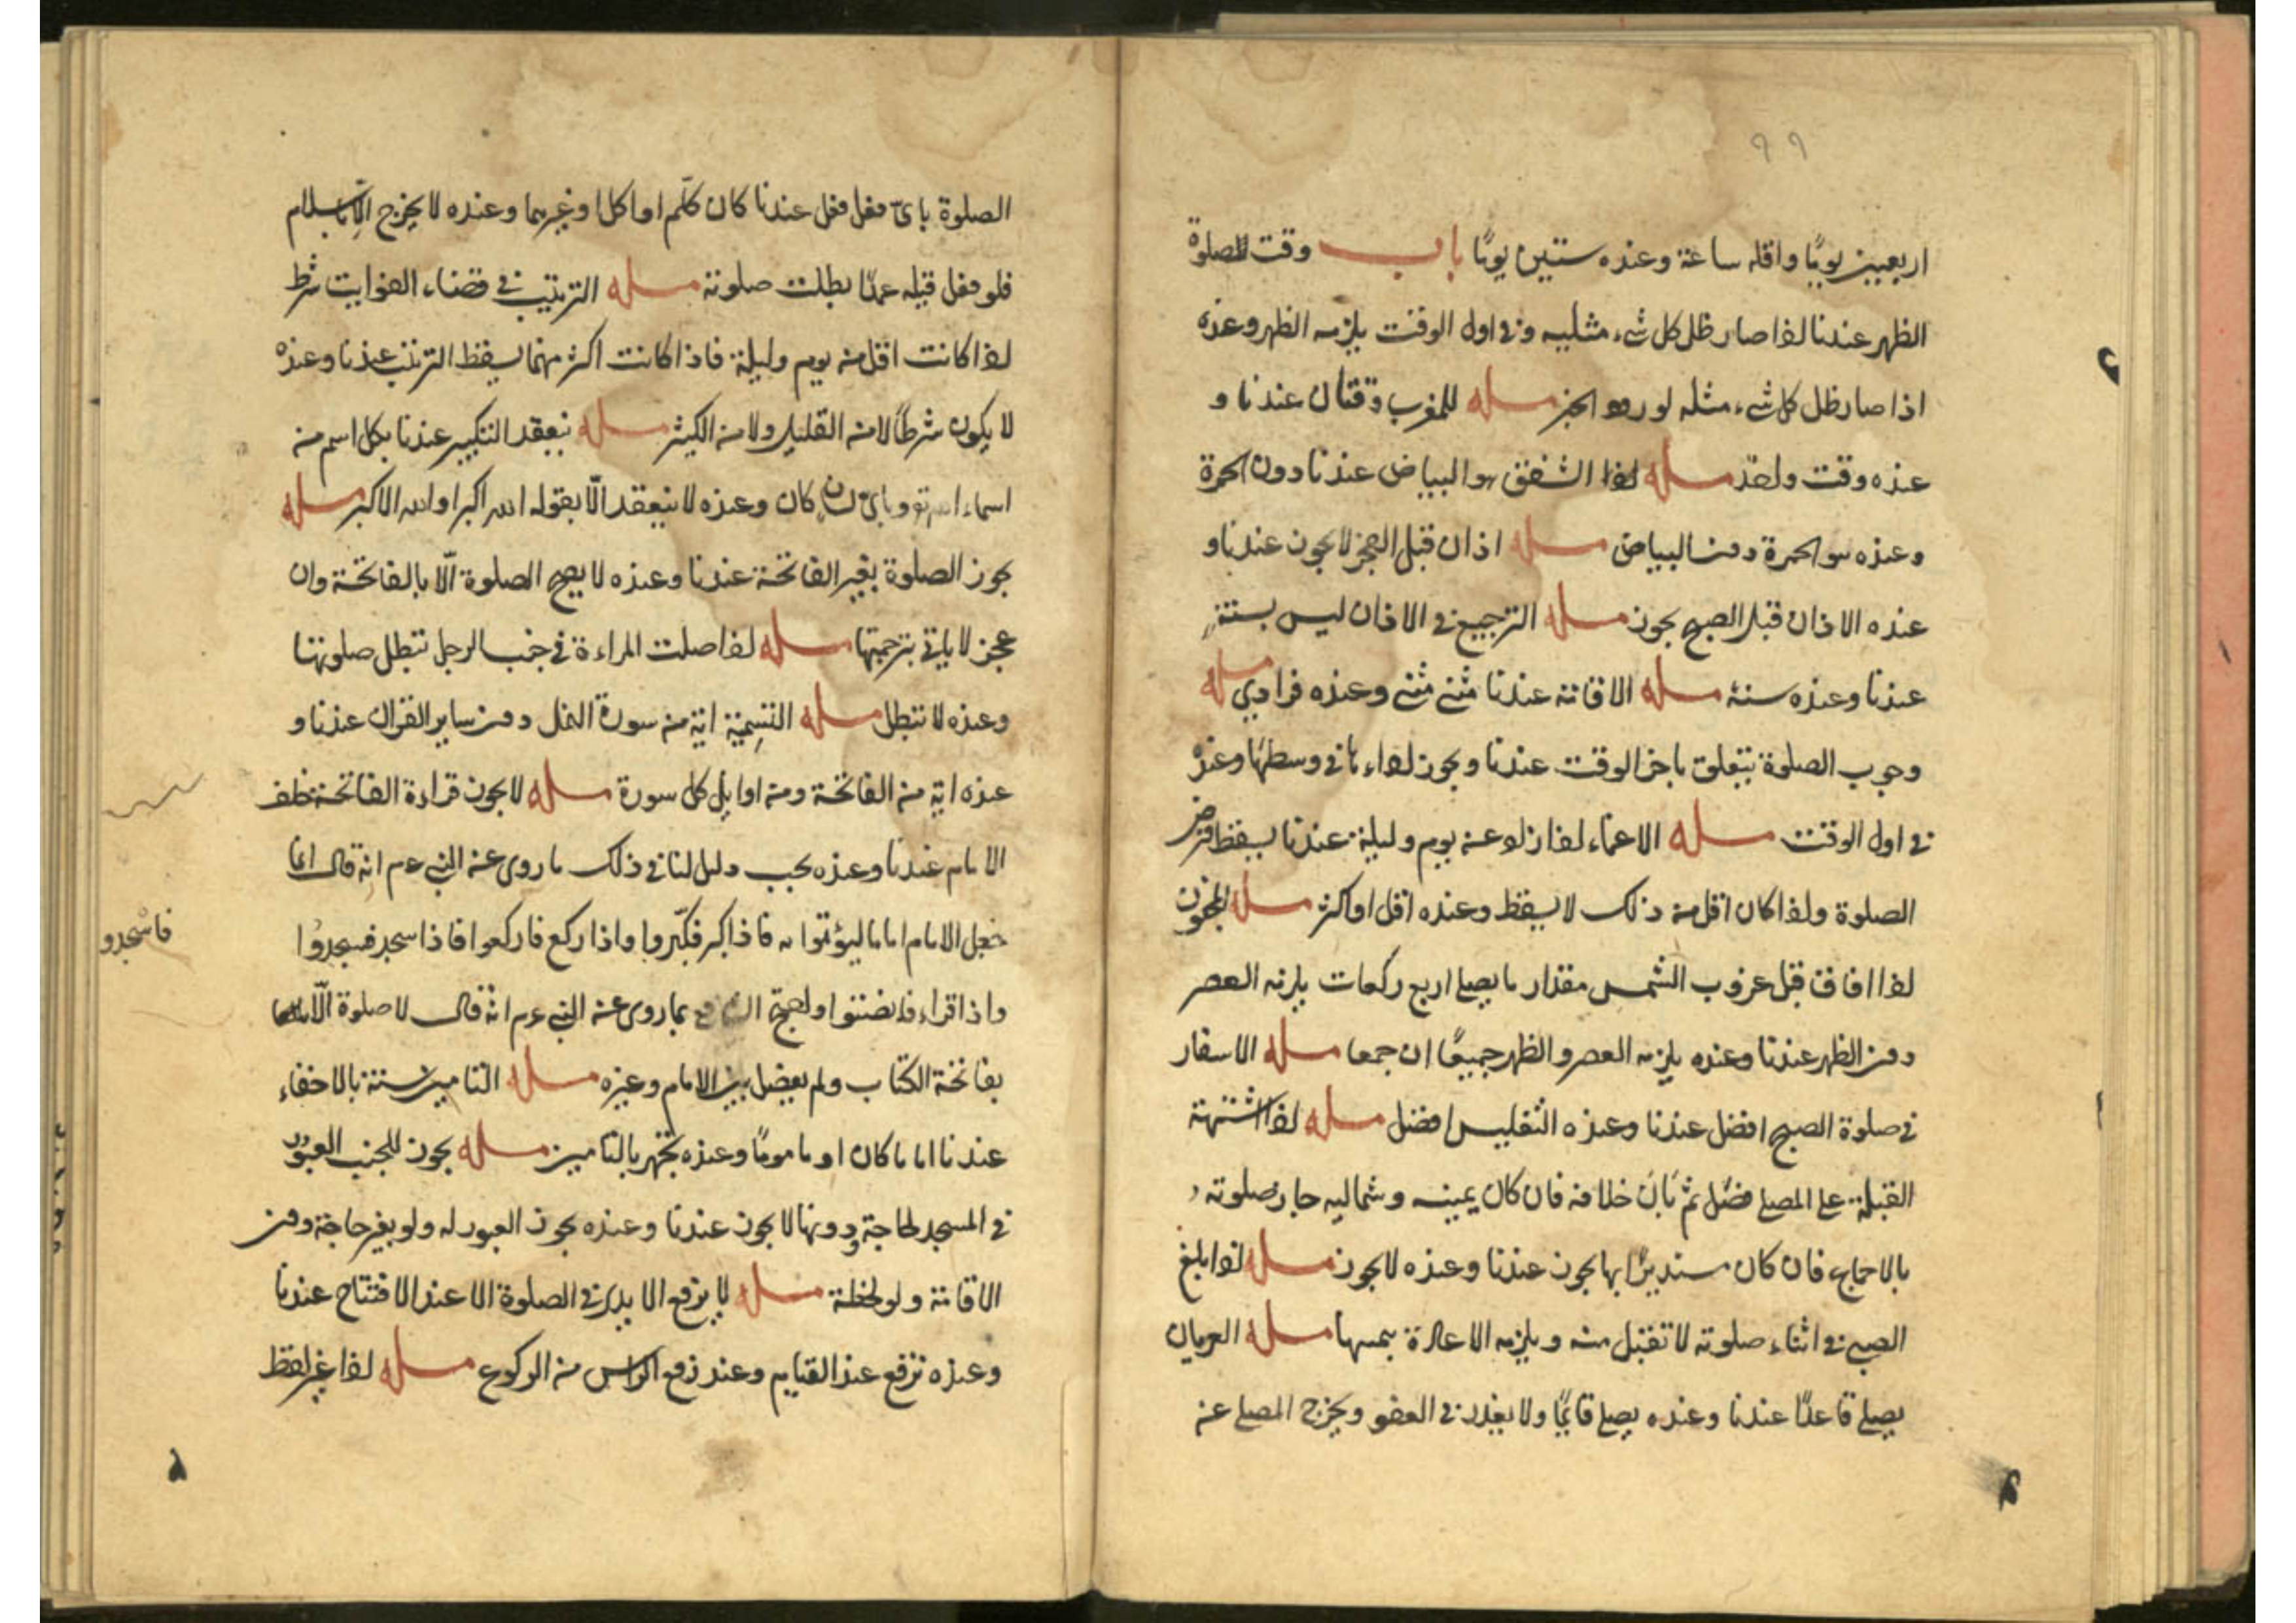 ٩٩
اربعين يومًا واقله ساعة وعنده ستين يومًا باب وقت الصلوة
الظهر عندنا اذا صار ظل كل شىء مثليه وفى اول الوقت يلزمه الظهر وعنده
اذا صار ظل كل شىء مثله لورود الخبر مسله للمغرب وقتان عندنا و
عنده وقت واحد مسله اذا الشفق هو البياض عندنا دون الحمرة
وعنده هو الحمرة دون البياض مسله اذان قبل الفجر لا يجوز عندنا و
عنده الاذان قبل الصبح يجوز مسله الترجيع فى الاذان ليس بسنة
عندنا وعنده سنة مسله الاقامة عندنا مثنى مثنى وعنده فرادي مسله
وجوب الصلوة يتعلق باخر الوقت عندنا ويجوز اداء ها فى وسطها وعنده
فى اول الوقت مسله الاغماء اذا زاد عن يوم وليلة عندنا يسقط فرض
الصلوة واذا كان اقل من ذلك لا يسقط وعنده اقل او اكثر مسله المجنون
اذا افاق قبل غروب الشمس مقدار ما يصلى اربع ركعات يلزمه العصر
دون الظهر عندنا وعنده يلزمه العصر والظهر جميعًا ان جمعا مسله الاسفار
فى صلوة الصبح افضل عندنا وعنده التغليس افضل مسله اذا اشتبهة
القبلة على المصلى فصلى ثم بان خلافه فان كان يمينه وشماليه جاز صلوته
بالاجماع فان كان مستديرًا بها يجوز عندنا وعنده لا يجوز مسله اذا بلغ
الصبى فى اثناء صلوته لا تقبل منه ويلزمه الاعادة بمسها مسله العريان
يصلى قاعدًا عندنا وعنده يصلى قائمًا ولا يعذر فى العضو ويخرج المصلى عن
الصلوة باىّ فعل فعل عندنا كان كلّم او اكل او غيرهما وعنده لا يخرج الا بالسلام
فلو فعل قبله عمدًا بطلت صلوته مسله الترتيب فى قضاء الفوايت شرط
اذا كانت اقل من يوم وليلة فاذا كانت اكثر منهما يسقط الترتيب عندنا وعنده
لا يكون شرطًا لا من القليل ولا من الكثير مسله ينعقد التكبير عندنا بكل اسم من
اسماء الله تع وباى لسان كان وعنده لا ينعقد الّا بقوله الله اكبر او الله الاكبر مسله
يجوز الصلوة بغير الفاتحة عندنا وعنده لا يصح الصلوة الّا بالفاتحة وان
عجز لا ياتى بترجمتها مسله اذا صلت المراءة فى جنب الرجل تبطل صلوتها
وعنده لا تبطل مسله التسمية اية من سورة النمل دون ساير القران عندنا و
عنده اية من الفاتحة ومن اوايل كل سورة مسله لا يجوز قراءة الفاتحة خلف
الامام عندنا وعنده يجب دليل لنا فى ذلك ما روى عن النبى عم انه قال انما
جعل الامام اماما ليؤتوا به فاذا كبر فكبّروا واذا ركع فاركعوا فاذا سجد فسجدوا
فاسْجدو
واذا قراء فانصتوا واحتج الشافعى بما روى عن النبى عم انه قال لا صلوة الّا
بفاتحة الكتاب ولم يفصل بين الامام وغيره مسله التامين سنة بالاخفاء
عندنا اماما كان او مامومًا وعنده يجهر بالتامين مسله يجوز للجنب العبور
فى المسجد لحاجة ودونها لا يجوز عندنا وعنده يجوز العبور له ولو بغير حاجة دون
الاقامة ولو لحظة مسله لا يرفع الايدى فى الصلوة الا عند الافتتاح عندنا
وعنده ترفع عند القيام وعند رفع الراس من الركوع مسله اذا غير لفظ